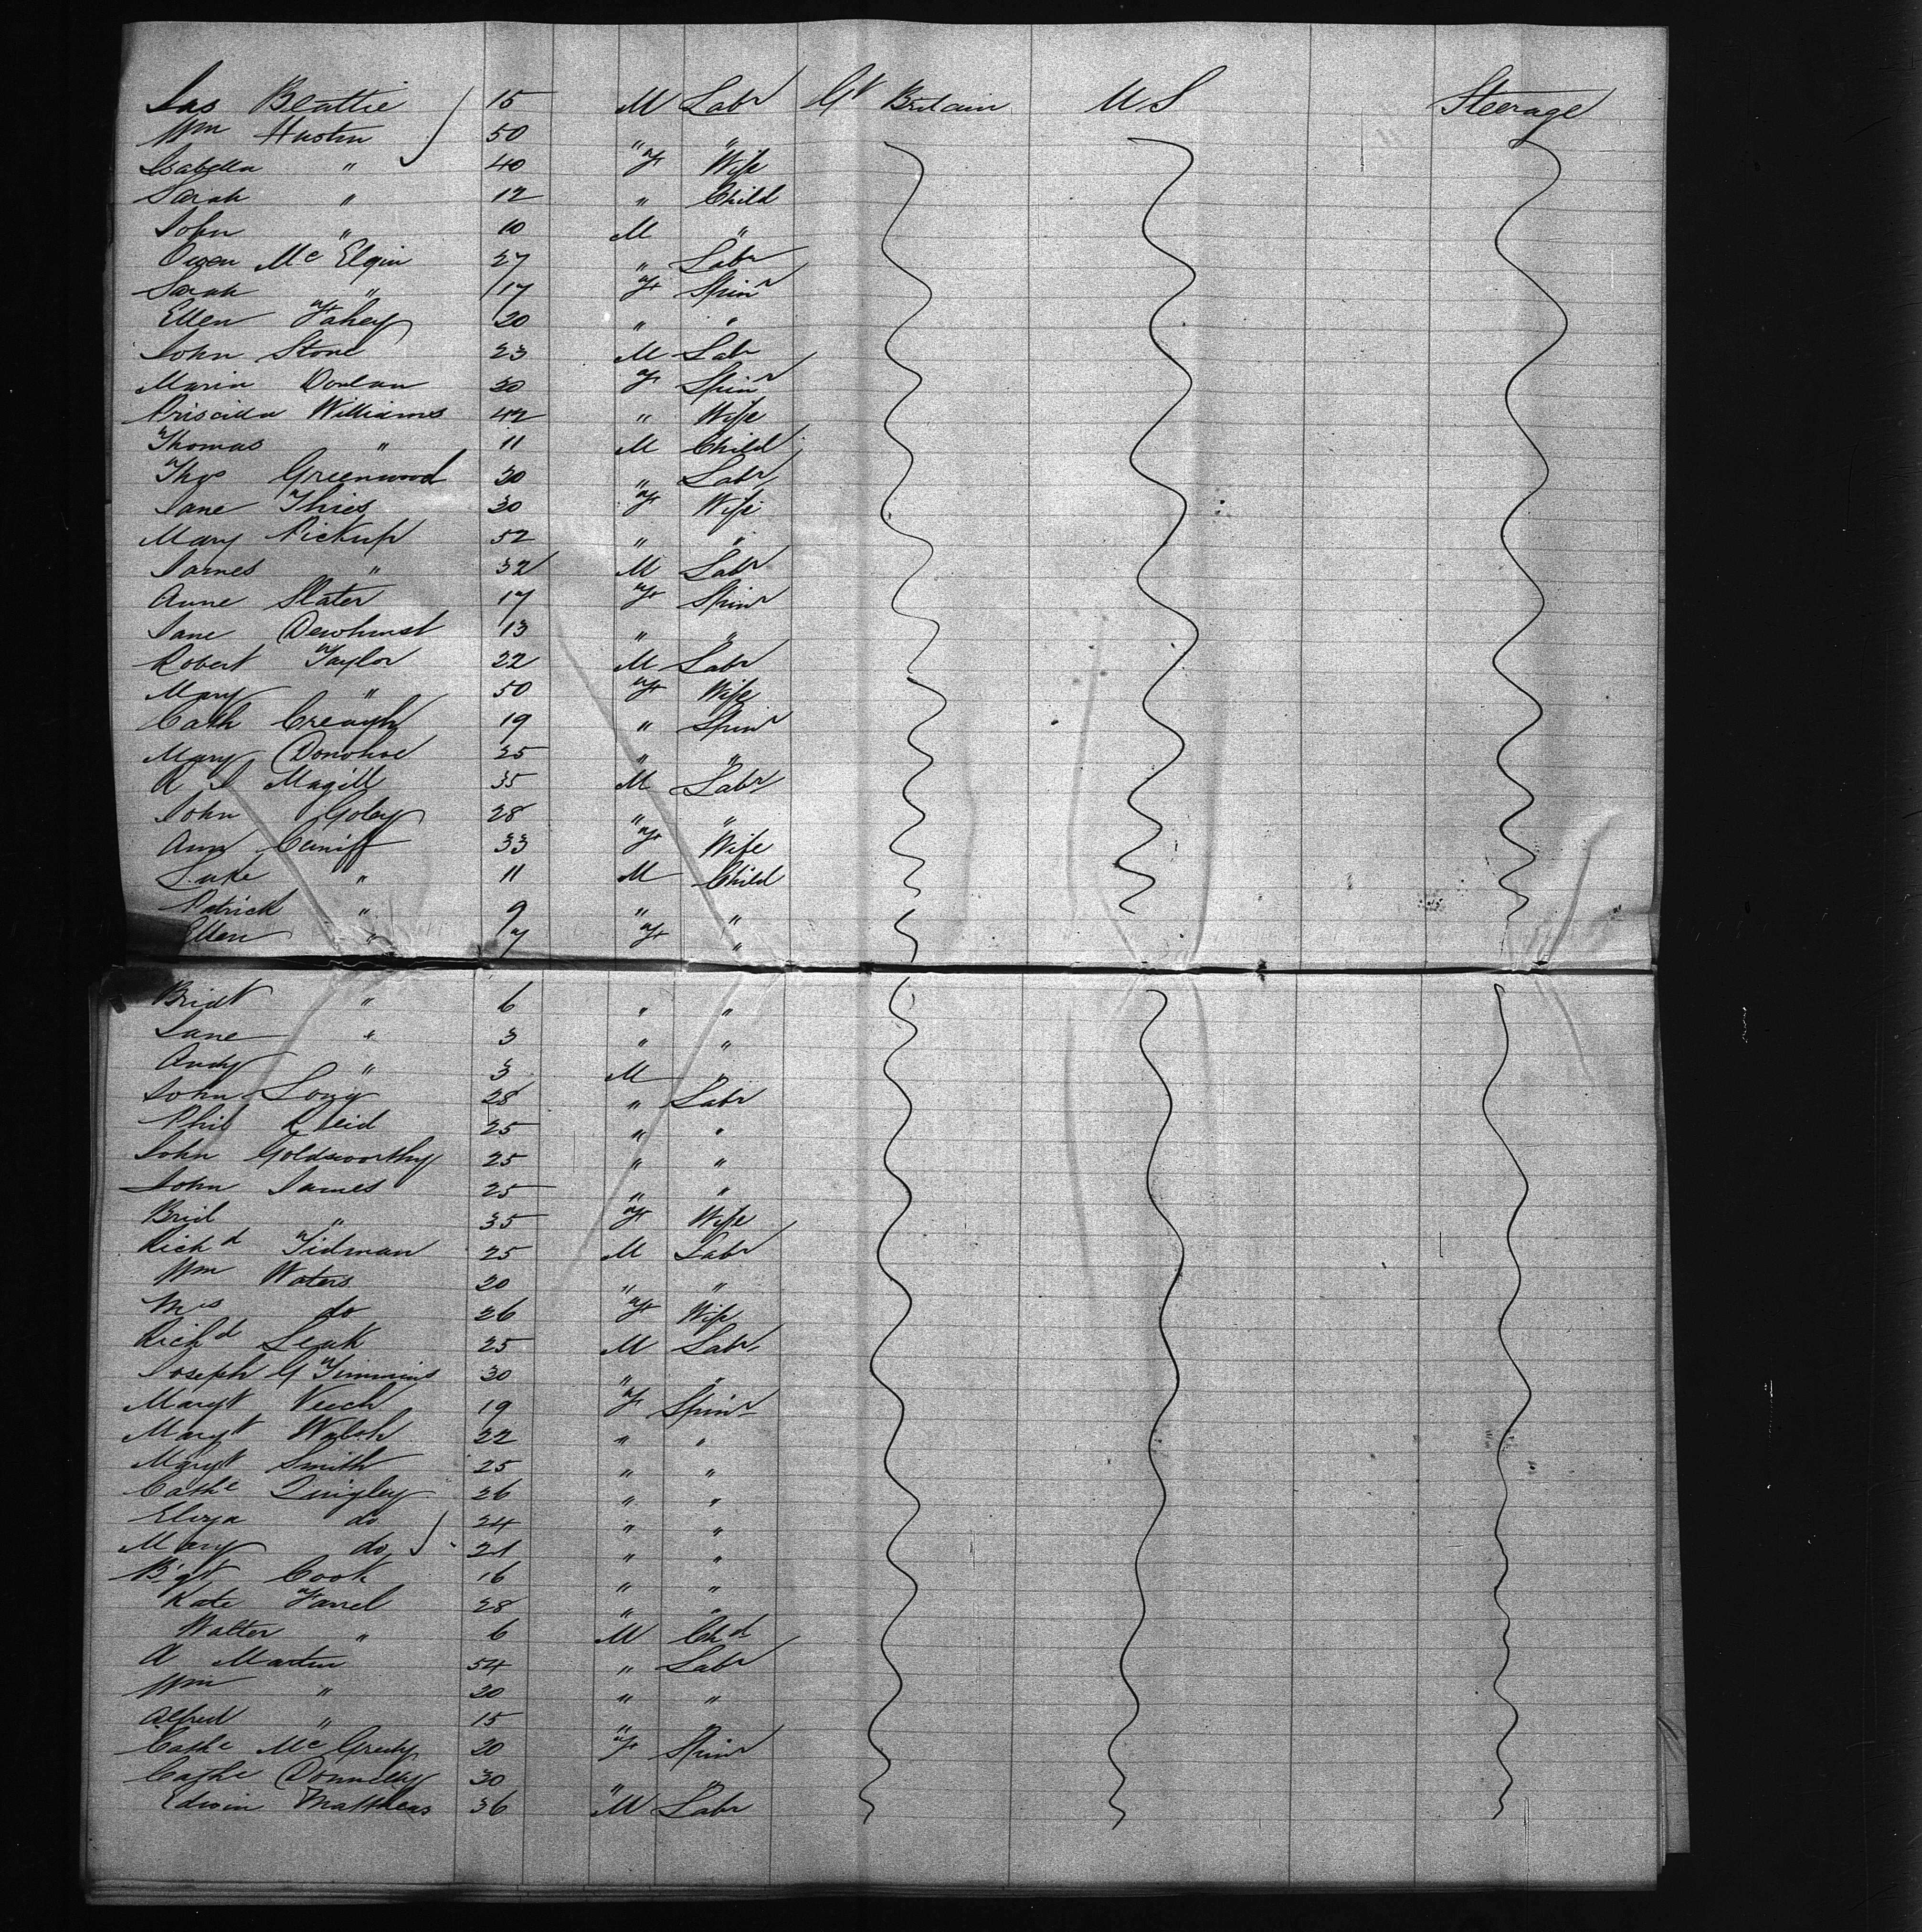 Jas Beattie 15 M Labr Gt Britain U S Steerage
Wm Huston 50 " "
Isabella " 40 F Wife
Sarah " 12 " Child
John " 10 M "
Owen Mc Elgin 27 " Labr
Sarah " 17 F Spinr
Ellen Fahey 20 " "
John Stone 23 M Labr
Maria Donlan 20 F Spinr
Priscilla Williams 42 " Wife
Thomas " 11 M Child
Thos Greenwood 30 " Labr
Jane Thies 30 F Wife
Mary Pickup 52 " "
James " 32 M Labr
Anne Slater 17 F Spinr
Jane Dewhurst 13 " "
Robert Taylor 22 M Labr
Mary " 50 F Wife
Cath Creagh 19 " Spinr
Mary Donohoe 25 " "
R J Magill 35 M Labr
John Goley 28 " "
Ann Cuniff 33 F Wife
Luke " 11 M Child
Patrick " 9 " "
Ellen " 7 F "
Bridt " 6 " "
Jane " 3 " "
Andy " 3 M "
John Long 28 " Labr
Phil Reid 25 " "
John Goldsworthy 25 " "
John James 25 " "
Brid " 35 F Wife
Richd Tidman 25 M Labr
Wm Waters 20 " "
Mrs do 26 F Wife
Richd Leak 25 M Labr
Joseph G Timmins 30 " "
Margt Veech 19 F Spinr
Margt Walsh 22 " "
Margt Smith 25 " "
Cathe Quigley 26 " "
Eliza do 24 " "
Mary do 21 " "
Bigt Cook 16 " "
Kate Farrel 28 " "
Walter " 6 M Chd
A Martin 54 " Labr
Wm " 20 " "
Alfred " 15 " "
Cathe Mc Greedy 20 F Spinr
Cathe Donnelly 30 " "
Edwin Matthews 36 M Labr